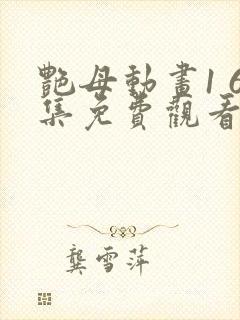 艷母動畫16
集免費觀看
龔雪萍